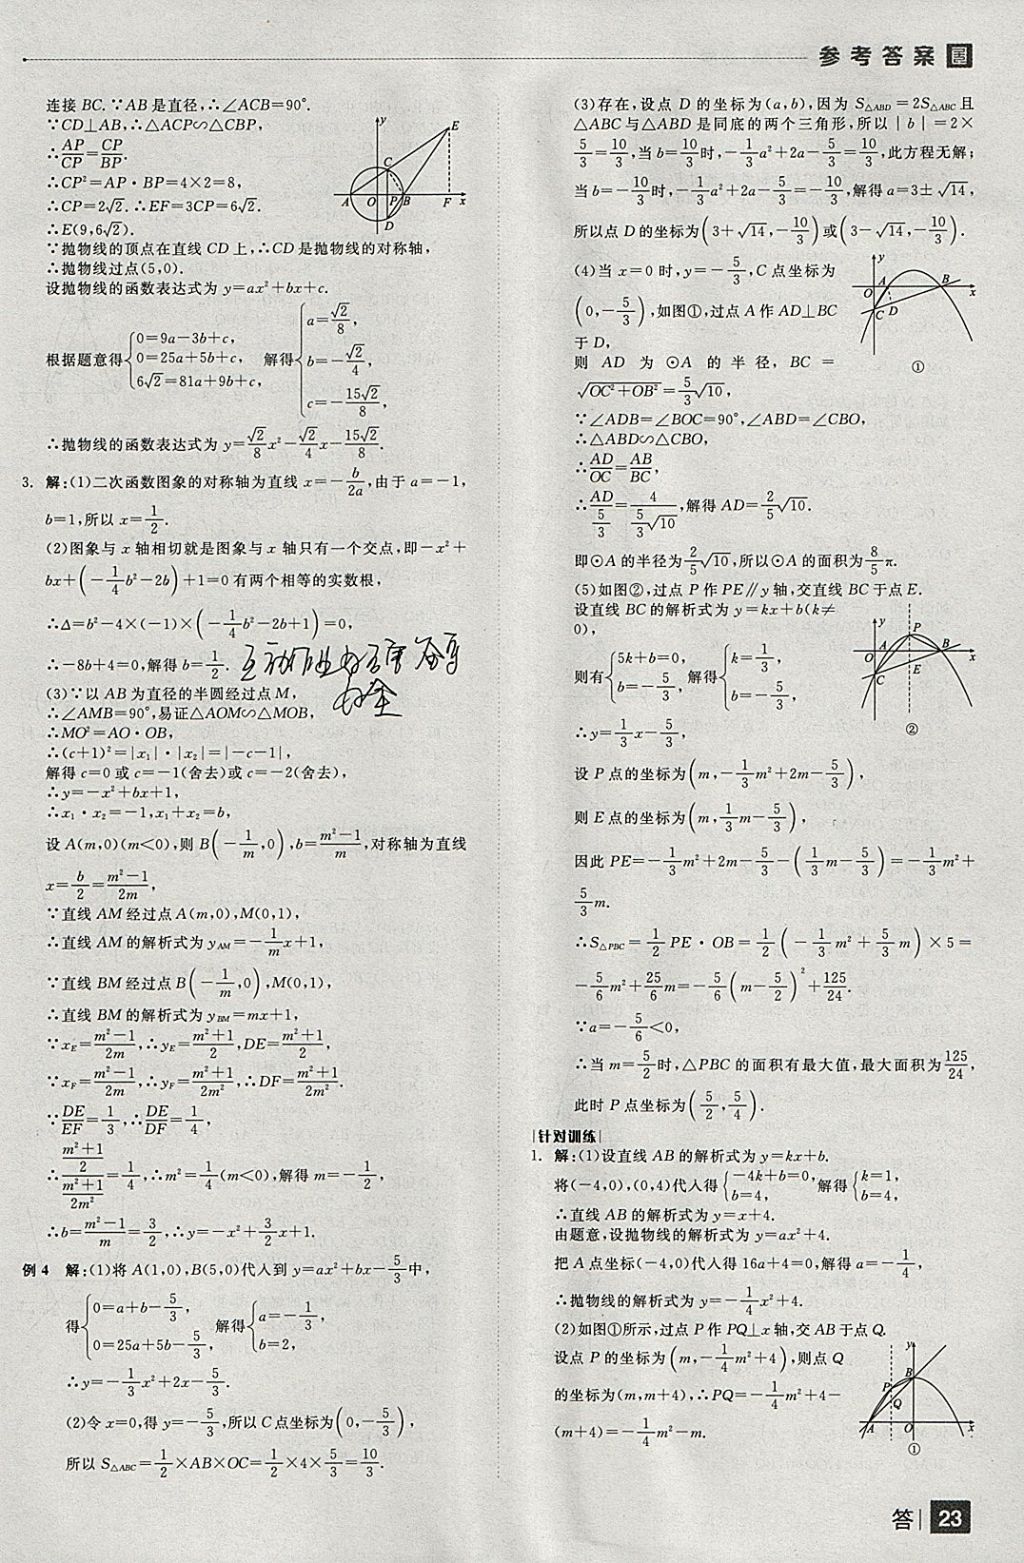 参考答案
连接 BC. ∵AB是直径,∴∠ACB=90°.
∵CD⊥AB,∴△ACP∽△CBP,
∴AP/CP=CP/BP.
∴CP²=AP·BP=4×2=8,
∴CP=2√2. ∴EF=3CP=6√2.
∴E(9,6√2).
y E C A O P B F x D
∵抛物线的顶点在直线 CD 上,∴CD是抛物线的对称轴,
∴抛物线过点(5,0).
设抛物线的函数表达式为 y=ax²+bx+c.
根据题意得{0=9a-3b+c, 0=25a+5b+c, 6√2=81a+9b+c, 解得{a=√2/8, b=-√2/4, c=-15√2/8,
∴抛物线的函数表达式为 y=√2/8x²-√2/4x-15√2/8.
3. 解:(1)二次函数图象的对称轴为直线 x=-b/2a,由于 a=-1,
b=1,所以 x=1/2.
(2)图象与 x 轴相切就是图象与 x 轴只有一个交点,即-x²+
bx+(-1/4b²-2b)+1=0有两个相等的实数根,
∴Δ=b²-4×(-1)×(-1/4b²-2b+1)=0,
∴-8b+4=0,解得 b=1/2.
(3)∵以 AB 为直径的半圆经过点 M,
∴∠AMB=90°,易证△AOM∽△MOB,
∴MO²=AO·OB,
∴(c+1)²=|x₁|·|x₂|=|-c-1|,
解得 c=0 或 c=-1(舍去)或 c=-2(舍去),
∴y=-x²+bx+1,
∴x₁·x₂=-1,x₁+x₂=b,
设 A(m,0)(m<0),则 B(-1/m,0),b=m²-1/m,对称轴为直线
x=b/2=m²-1/2m,
∵直线 AM 经过点 A(m,0),M(0,1),
∴直线 AM 的解析式为 y_AM=-1/m x+1,
∵直线 BM 经过点 B(-1/m,0),M(0,1),
∴直线 BM 的解析式为 y_BM=mx+1,
∵x_E=m²-1/2m,∴y_E=m²+1/2,DE=m²+1/2,
∵x_F=m²-1/2m,∴y_F=m²+1/2m²,∴DF=m²+1/2m².
∵DE/EF=1/3,∴DE/DF=1/4,
∴(m²+1/2)/(m²+1/2m²)=1/4,∴m²=1/4(m<0),解得 m=-1/2,
∴b=m²-1/m=3/2,∴y=-x²+3/2x+1.
例4 解:(1)将 A(1,0),B(5,0)代入到 y=ax²+bx-5/3中,
得{0=a+b-5/3, 0=25a+5b-5/3, 解得{a=-1/3, b=2,
∴y=-1/3x²+2x-5/3.
(2)令 x=0,得 y=-5/3,所以 C 点坐标为(0,-5/3),
所以 S△ABC=1/2×AB×OC=1/2×4×5/3=10/3.
(3)存在,设点 D 的坐标为(a,b),因为 S△ABD=2S△ABC且
△ABC与△ABD 是同底的两个三角形,所以|b|=2×
5/3=10/3,当 b=10/3时,-1/3a²+2a-5/3=10/3,此方程无解;
当 b=-10/3时,-1/3a²+2a-5/3=-10/3,解得 a=3±√14,
所以点 D 的坐标为(3+√14,-10/3)或(3-√14,-10/3).
(4)当 x=0 时,y=-5/3,C 点坐标为
(0,-5/3),如图①,过点 A 作 AD⊥BC
于 D,
则 AD 为 ⊙A 的半径,BC=
√OC²+OB²=5/3√10,
y O A B x C D
①
∵∠ADB=∠BOC=90°,∠ABD=∠CBO,
∴△ABD∽△CBO,
∴AD/OC=AB/BC,
∴AD/(5/3)=4/(5/3√10),解得 AD=2/5√10.
即⊙A 的半径为2/5√10,所以⊙A 的面积为8/5π.
(5)如图②,过点 P 作 PE∥y 轴,交直线 BC 于点 E.
设直线 BC 的解析式为 y=kx+b(k≠
0),
则有{5k+b=0, b=-5/3, 解得{k=1/3, b=-5/3,
y P A B O E x C
②
∴y=1/3x-5/3,
设 P 点的坐标为(m,-1/3m²+2m-5/3),
则 E 点的坐标为(m,1/3m-5/3),
因此 PE=-1/3m²+2m-5/3-(1/3m-5/3)=-1/3m²+
5/3m.
∴S△PBC=1/2PE·OB=1/2(-1/3m²+5/3m)×5=
-5/6m²+25/6m=-5/6(m-5/2)²+125/24.
∵a=-5/6<0,
∴当 m=5/2时,△PBC 的面积有最大值,最大面积为125/24,
此时 P 点坐标为(5/2,5/4).
针对训练
1. 解:(1)设直线 AB 的解析式为 y=kx+b.
将(-4,0),(0,4)代人得{-4k+b=0, b=4, 解得{k=1, b=4,
∴直线 AB 的解析式为 y=x+4.
由题意,设抛物线的解析式为 y=ax²+4.
把 A 点坐标(-4,0)代人得 16a+4=0,解得 a=-1/4,
∴抛物线的解析式为 y=-1/4x²+4.
(2)如图①所示,过点 P 作 PQ⊥x 轴,交 AB 于点 Q.
设点 P 的坐标为(m,-1/4m²+4),则点 Q
的坐标为(m,m+4),∴PQ=-1/4m²+4-
(m+4)=-1/4m²-m.
y B P Q A O x
①
答 23